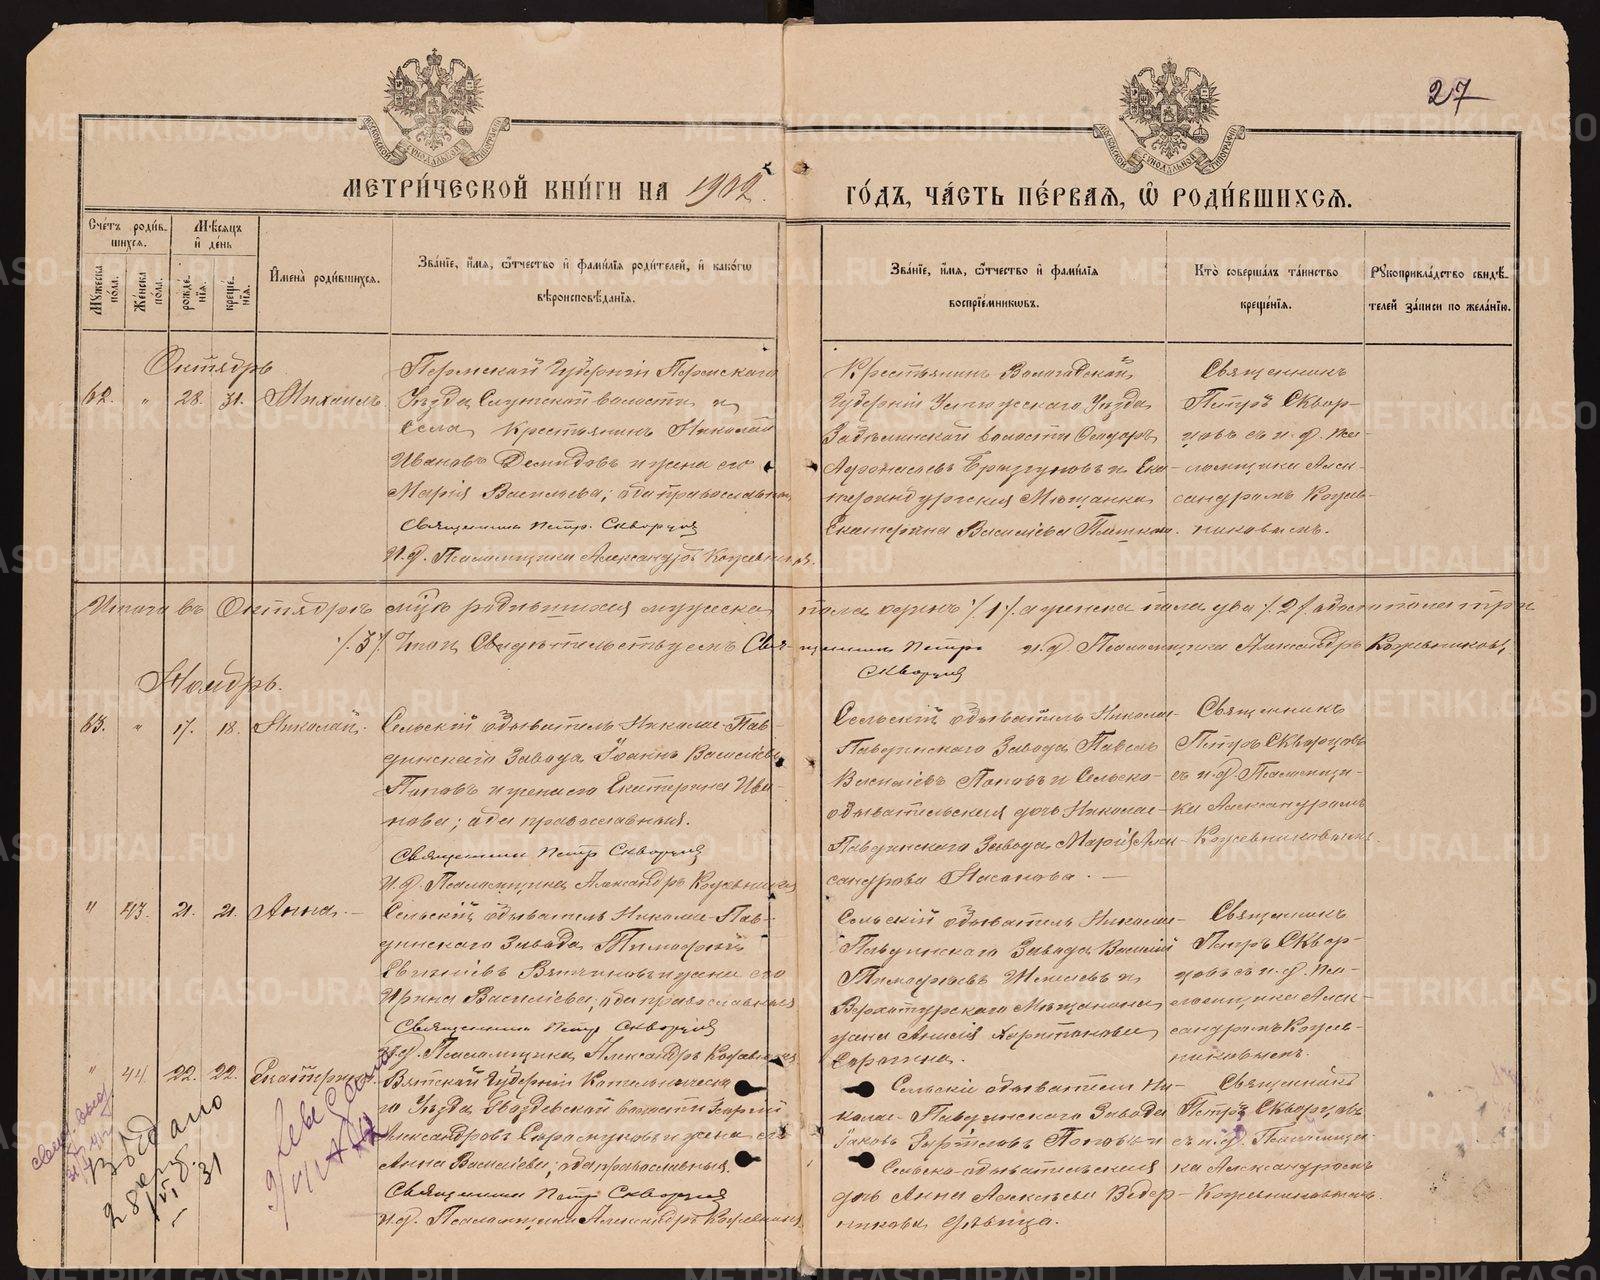 27
МОСКОВСКОЙ СѴНОДАЛЬНОЙ ТИПОГРАФІИ
МОСКОВСКОЙ СѴНОДАЛЬНОЙ ТИПОГРАФІИ
МЕТРИ́ЧЕСКОЙ КНИ́ГИ НА 1902
ГО́ДЪ, ЧА́СТЬ ПЕ́РВАЯ, Ѡ РОДИ́ВШИХСЯ.
Сче́тъ роди́в-
шихся.
Мꙋ́жеска по́ла.
Же́нска по́ла.
Мѣ́сяцъ и҆ де́нь
рожде́-
нїя.
креще́-
нїя.
И҆мена̀ роди́вшихся.
Зва́нїе, и҆́мя, ѻ҆́тчество и҆ фами́лїя роди́телей, и҆ како́гѡ
вѣроисповѣ́данїя.
Зва́нїе, и҆́мя, ѻ҆́тчество и҆ фами́лїя
воспрїе́мникѡвъ.
Кто̀ соверша́лъ та́инство
креще́нїя.
Рꙋкоприкла́дство свидѣ́-
телей за́писи по жела́нїю.
Октябрь
62. " 28. 31. Михаилъ
Пермской Губерніи Пермскаго
Уѣзда, Слудской волости и
Села, Крестьянинъ Николай
Ивановъ Демидовъ и жена его
Марія Васильева; оба православны
Священникъ Петр. Скворцов
И.д. Псаломщика Александръ Кожевников.
Крестьянинъ Вологодской
Губерніи Устюгскаго Уѣзда
волости Ѳедоръ
Аѳонасьевъ Брызгуновъ и Ека-
теринбургская Мѣщанка
Екатерина Васильева
Священникъ
Петръ Сквор-
цовъ съ и. д. Пса-
ломщика Алек-
сандромъ Кожев-
никовымъ.
Итого въ Октябрѣ мцѣ родившихся мужеска пола одинъ /1/. а женска пола два /2/. обоего пола три
/3/. Свидѣтельствуемъ Свя-
щенникъ Петръ Скворцов
и.д. Псаломщика Александръ Кожевниковъ
Ноябрь.
63. " 17. 18. Николай.
Сельскій обыватель Николае-Пав-
динскаго Завода, Іоаннъ Васильевъ
Поповъ и жена его Екатерина Ива-
нова; оба православныя.
Священникъ Петр Скворцов
И.д. Псаломщика Александръ Кожевников
Сельскій обыватель Николае-
Павдинскаго Завода Павелъ
Васильевъ Поповъ и Сельско-
обывательская дочь Николае-
Павдинскаго Завода, Марія Алек-
сандрова Насонова. —
Священникъ
Петръ Скворцовъ
съ и.д. Псаломщи-
ка Александромъ
Кожевниковымъ.
" 43. 21. 21. Анна. —
Сельскій обыватель Николае-Пав-
динскаго Завода, Тимоѳей
Евгеніевъ и жена его
Ирина Васильева; оба православныя
Священникъ Петр Скворцов
И.д. Псаломщика, Александръ Кожевников
Сельскій обыватель Николае-
Павдинскаго Завода Василій
Тимоѳеевъ и
Верхотурскаго Мѣщанина,
жена Анисія Харитонова
Сорокина.
Священникъ
Петръ Сквор-
цовъ съ и. д. Пса-
ломщика Алек-
сандромъ Кожев-
никовымъ.
" 44. 22. 22. Екатерина.
Вятской Губерніи Котельническа-
го Уѣзда, Гвоздевской волости
Александровъ и жена его
Анна Васильева; оба православныя.
Священникъ Петр Скворцов
И.д. Псаломщика Александръ Кожевников
Сельскіе обыватели Ни-
колае-Павдинскаго Завода
Іаковъ Поповъ и
Сельско-обывательская
дочь Анна Алексѣева Ведер-
никова дѣвица.
Священникъ
Петръ Скворцовъ
съ и.д. Псаломщи-
ка Александромъ
Кожевниковымъ.
28
31
METRIKI.GASO-URAL.RU